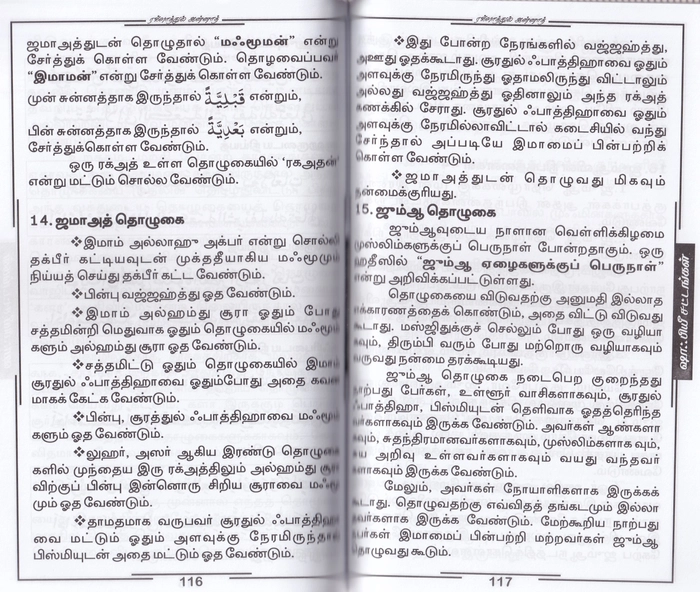 ஜமாஅத்துடன் தொழுதால் “மஃமூமன்” என்று
சேர்த்துக் கொள்ள வேண்டும். தொழவைப்பவர்
“இமாமன்” என்று சேர்த்துக் கொள்ள வேண்டும்.
முன் சுன்னத்தாக இருந்தால் قَبْلِيَّةً என்றும்,
பின் சுன்னத்தாக இருந்தால் بَعْدِيَّةً என்றும்,
சேர்த்துக்கொள்ள வேண்டும்.
ஒரு ரக்அத் உள்ள தொழுகையில் ‘ரகஅதன்’
என்று மட்டும் சொல்ல வேண்டும்.
14. ஜமாஅத் தொழுகை
❖இமாம் அல்லாஹு அக்பர் என்று சொல்லி
தக்பீர் கட்டியவுடன் முக்ததீயாகிய மஃமூமும்
நிய்யத் செய்து தக்பீர் கட்ட வேண்டும்.
❖பின்பு வஜ்ஜஹ்த்து ஓத வேண்டும்.
❖இமாம் அல்ஹம்து சூரா ஓதும் போது
சத்தமின்றி மெதுவாக ஓதும் தொழுகையில் மஃமூம்
களும் அல்ஹம்து சூரா ஓத வேண்டும்.
❖சத்தமிட்டு ஓதும் தொழுகையில் இமாம்
சூரதுல் ஃபாத்திஹாவை ஓதும்போது அதை கவன
மாகக் கேட்க வேண்டும்.
❖பின்பு, சூரத்துல் ஃபாத்திஹாவை மஃமூம்
களும் ஓத வேண்டும்.
❖லுஹர், அஸர் ஆகிய இரண்டு தொழுகை
களில் முந்தைய இரு ரக்அத்திலும் அல்ஹம்து சூரா
விற்குப் பின்பு இன்னொரு சிறிய சூராவை மஃமூ
மும் ஓத வேண்டும்.
❖தாமதமாக வருபவர் சூரதுல் ஃபாத்திஹா
வை மட்டும் ஓதும் அளவுக்கு நேரமிருந்தால்
பிஸ்மியுடன் அதை மட்டும் ஓத வேண்டும்.
116
❖இது போன்ற நேரங்களில் வஜ்ஜஹ்த்து,
அஊது ஓதக்கூடாது. சூரதுல் ஃபாத்திஹாவை ஓதும்
அளவுக்கு நேரமிருந்து ஓதாமலிருந்து விட்டாலும்
அல்லது வஜ்ஜஹ்த்து ஓதினாலும் அந்த ரக்அத்
கணக்கில் சேராது. சூரதுல் ஃபாத்திஹாவை ஓதும்
அளவுக்கு நேரமில்லாவிட்டால் கடைசியில் வந்து
சேர்ந்தால் அப்படியே இமாமைப் பின்பற்றிக்
கொள்ள வேண்டும்.
❖ஜமாஅத்துடன் தொழுவது மிகவும்
நன்மைக்குரியது.
15. ஜும்ஆ தொழுகை
ஜும்ஆவுடைய நாளான வெள்ளிக்கிழமை
முஸ்லிம்களுக்குப் பெருநாள் போன்றதாகும். ஒரு
ஹதீஸில் “ஜும்ஆ ஏழைகளுக்குப் பெருநாள்”
என்று அறிவிக்கப்பட்டுள்ளது.
தொழுகையை விடுவதற்கு அனுமதி இல்லாத
எக்காரணத்தைக் கொண்டும், அதை விட்டு விடுவது
கூடாது. மஸ்ஜிதுக்குச் செல்லும் போது ஒரு வழியா
கவும், திரும்பி வரும் போது மற்றொரு வழியாகவும்
வருவது நன்மை தரக்கூடியது.
ஜும்ஆ தொழுகை நடைபெற குறைந்தது
நாற்பது பேர்கள், உள்ளூர் வாசிகளாகவும், சூரதுல்
ஃபாத்திஹா, பிஸ்மியுடன் தெளிவாக ஓதத்தெரிந்த
வர்களாகவும் இருக்க வேண்டும். அவர்கள் ஆண்களா
கவும், சுதந்திரமானவர்களாகவும், முஸ்லிம்களாகவும்,
அறிவு உள்ளவர்களாகவும் வயது வந்தவர்
களாகவும் இருக்க வேண்டும்.
மேலும், அவர்கள் நோயாளிகளாக இருக்கக்
கூடாது. தொழுவதற்கு எவ்விதத் தங்கடமும் இல்லா
தவர்களாக இருக்க வேண்டும். மேற்கூறிய நாற்பது
பேர்கள் இமாமைப் பின்பற்றி மற்றவர்கள் ஜும்ஆ
தொழுவது கூடும்.
117
ஷாஃபியீ சட்டங்கள்